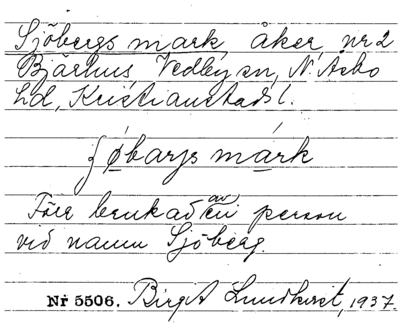 Sjöbergs mark, åker, nr 2
Bjärhus, Vedby sn, N. Åsbo
hd, Kristianstads l.
ʃǿbarjs márk
Förr brukad av en person
vid namn Sjöberg.
Nr 5506. Birgit Lundkvist, 1937.